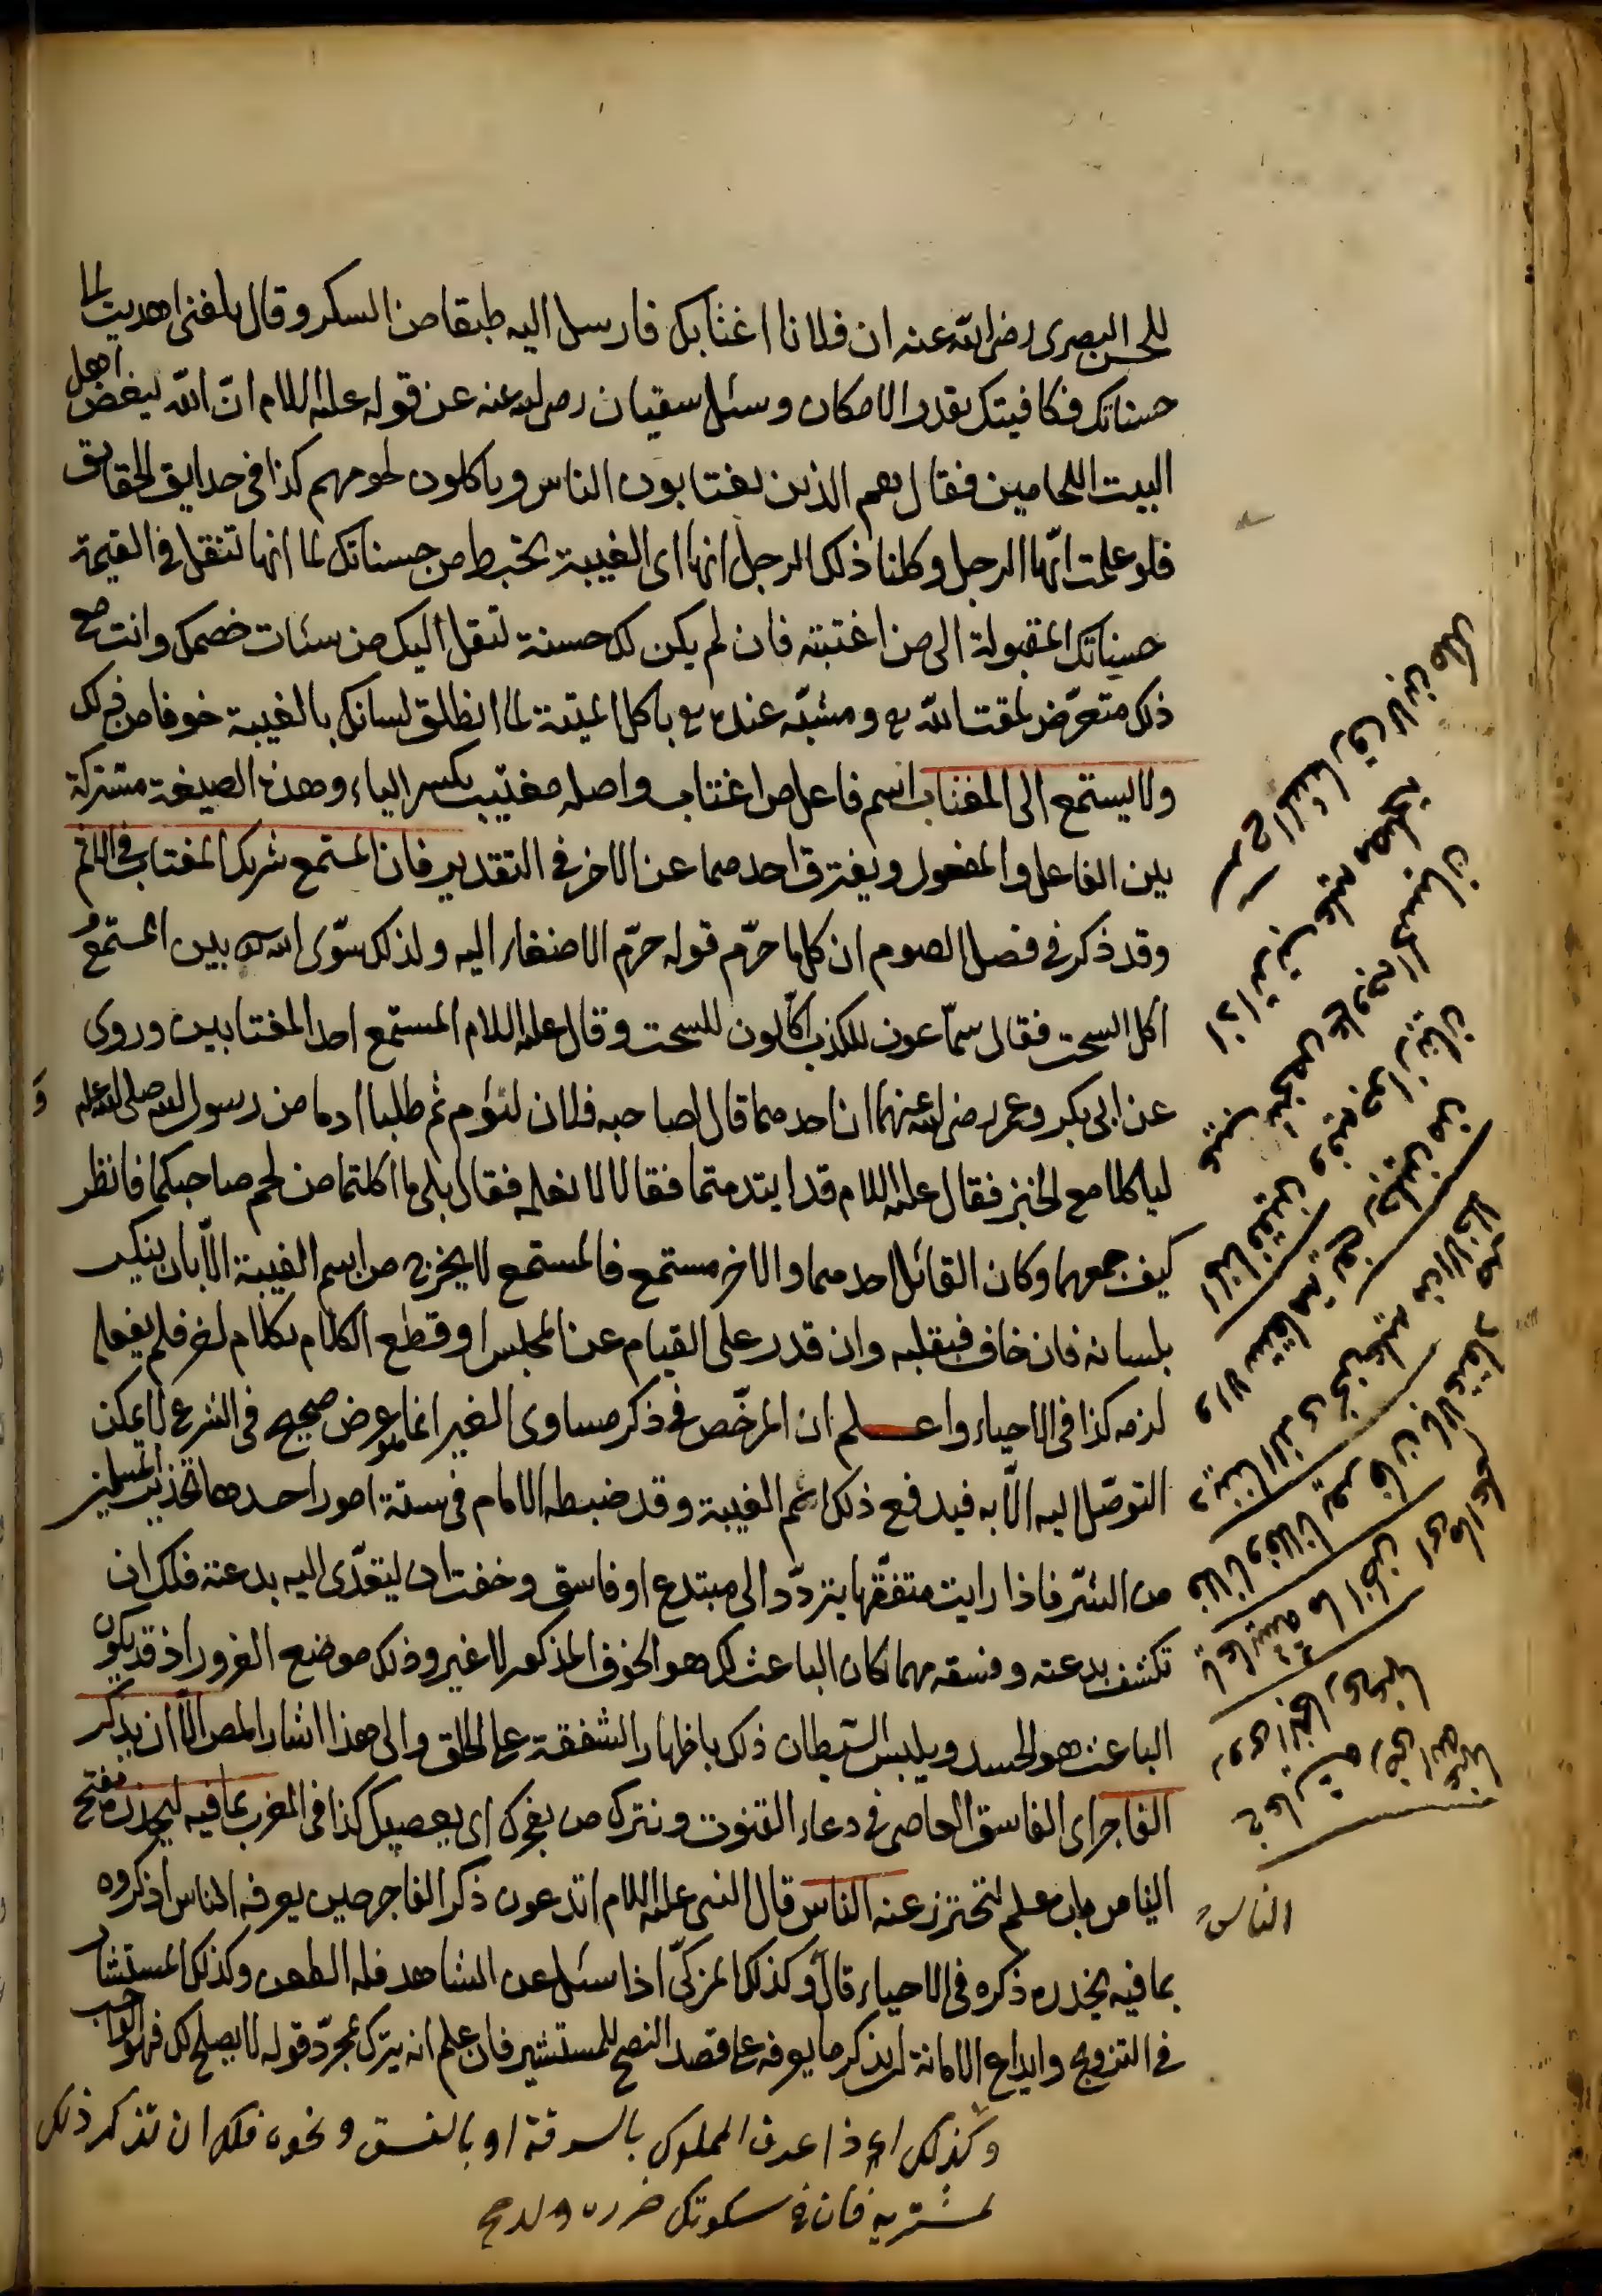 للحسن البصرى رضى الله عنه ان فلانا اغتابك فارسل اليه طبقا من السكر وقال بلغنى اهديت لنا
حسناتك فكافيتك بقدر الامكان وسئل سفيان رضى الله عنه عن قوله عليه السلام انّ الله ليبغض اهل
البيت اللحامين فقال هم الذين يغتابون الناس وياكلون لحومهم كذا فى حدايق الحقايق
فلو علمت ايّها الرجل وكلنا ذلك الرجل انها اى الغيبة تحبط من حسناتك لما انها تنقل فى القيمة
حسناتك المقبولة الى من اغتبته فان لم يكن لك حسنة تنقل اليك من سئات خصمك وانت مع
ذلك متعرّض لمقت الله تع ومشبّه عنده تع باكل الميتة لما انطلق لسانك بالغيبة خوفا من ذلك
ولا يستمع الى المغتاب اسم فاعل من اغتاب واصله مغتيب بكسر الياء وهذه الصيغة مشتركة
بين الفاعل والمفعول ويفترق احدهما عن الاخر فى التقدير فان المستمع شريك المغتاب فى الاثم
وقد ذكر فى فصل الصوم ان كلما حرّم قوله حرّم الاصغاء اليه ولذلك سوّى الله تع بين المستمع و
اكل السحت فقال سمّاعون للكذب اكّالون للسحت وقال عليه السلام المستمع احد المغتابين وروى
عن ابى بكر وعمر رضى الله عنهما ان احدهما قال لصاحبه فلان لنؤم ثم طلبا ادما من رسول الله صلى الله عليه
لياكلا مع الخبز فقال عليه السلام قد ايتدمتما فقالا لا نعلمه فقال بلى ما اكلتما من لحم صاحبكما فانظر
كيف جمعهما وكان القائل احدهما والاخر مستمع فالمستمع لا يخرج من اسم الغيبة الّا بان ينكر
بلسانه فان خاف فبقلبه وان قدر على القيام عن المجلس او قطع الكلام بكلام اخر فلم يفعل
لزمه كذا فى الاحياء واعلم ان المرخّص فى ذكر مساوى الغير انما هو غرض صحيح فى الشرع لا يمكن
التوصّل اليه الّا به فيدفع ذلك اثم الغيبة وقد ضبطه الامام فى ستة امور احدها تحذير المسلمين
من الشرّ فاذا رايت متفقّها يتردّد الى مبتدع او فاسق وخفت ان يتعدّى اليه بدعته فلك ان
تكشف بدعته وفسقه مهما كان الباعث لك هو الخوف المذكور لا غير وذلك موضع الغرور اذ قد يكون
الباعث هو الحسد ويلبس الشيطان ذلك باظهار الشفقة على الخلق والى هذا اشار المص الّا ان يذكر
الفاجر اى الفاسق العاصى فى دعاء القنوت ونترك من يفجرك اى يعصيك كذا فى المغرب بما فيه ليحذره مفتح
الياء من باب علم لتحترز عنه الناس قال النبى عليه السلام اتدعون ذكر الفاجر حين يعرفه الناس اذكروه
بما فيه يحذره ذكره فى الاحياء قال وكذلك المزكّى اذا سئل عن الشاهد فله الطعن وكذلك المستشار
فى التزويج وايداع الامانة له ان يذكر ما يعرفه على قصد النصح للمستشير فان علم انه يترك بمجرّد قوله لا يصلح لك فهو الواجب
وكذلك اذا عرف المملوك بالسرقة او بالفسق ونحوه فلك ان تذكر ذلك
لمشتريه فان فى سكوتك ضرره
الناس